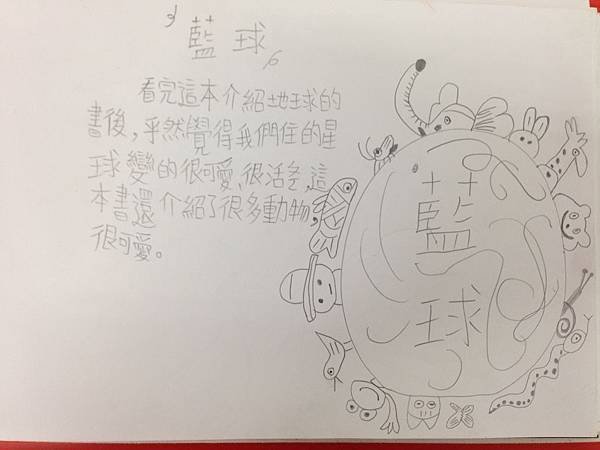 藍球
看完這本介紹地球的
書後,乎然覺得我們住的星
球變的很可愛、很活,這
本書還介紹了很多動物,
很可愛。
藍
球